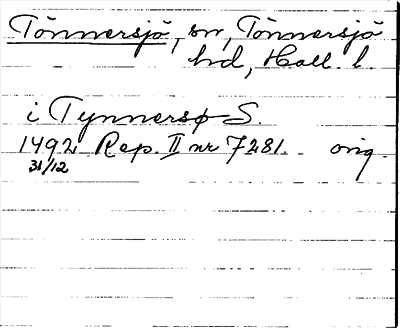 Tönnersjö, sn, Tönnersjö
hd, Hall. l.
i Tynnersø S.
1492 Rep. II nr 7281. orig.
31/12